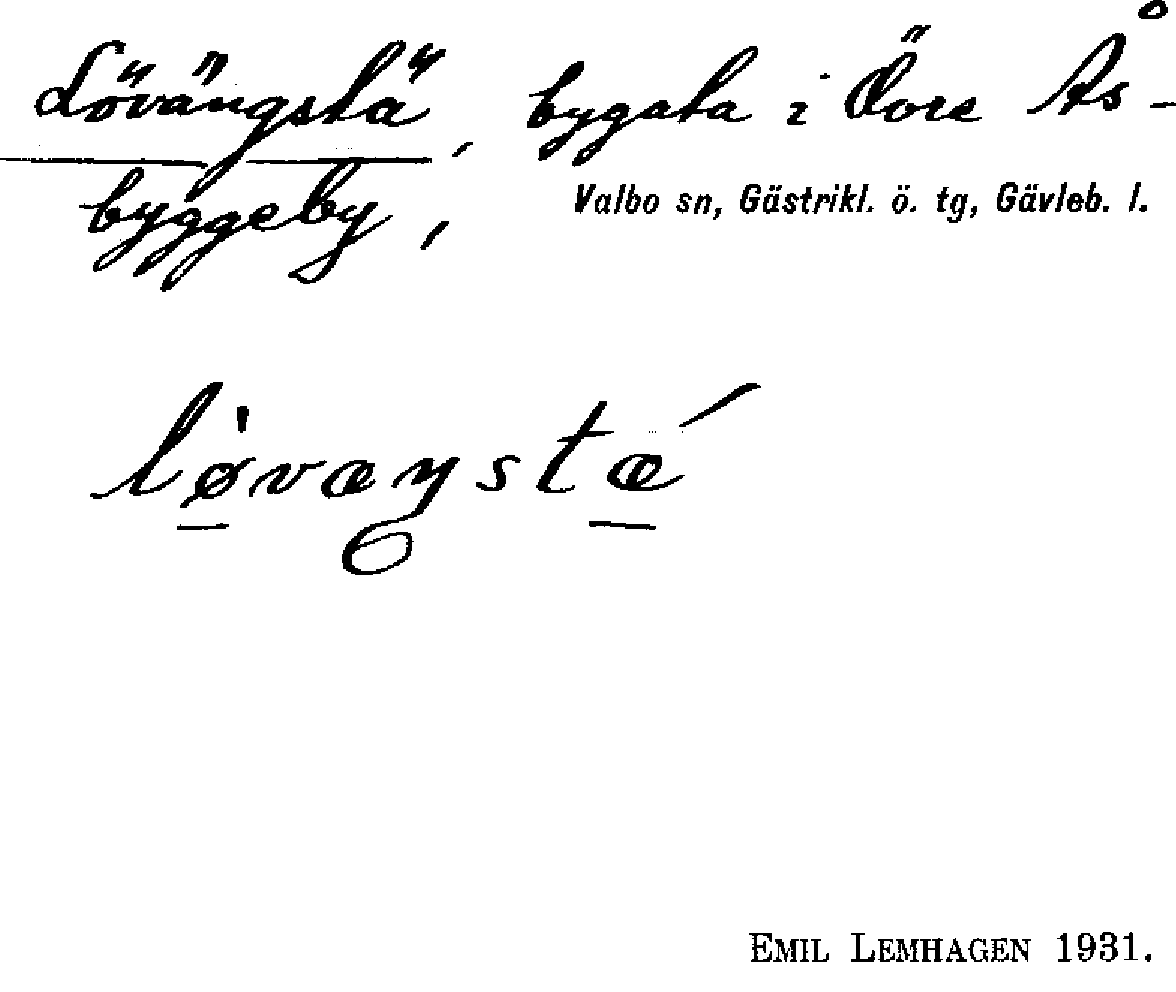 Lövängstä, bygata i Övre Ås-
byggeby, Valbo sn, Gästrikl. ö. tg, Gävleb. l.
lø̀væŋstǽ
EMIL LEMHAGEN 1931.